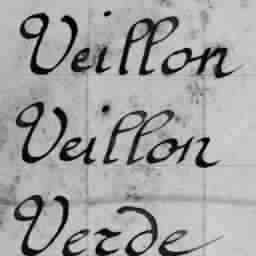 Veillon
Veillon
Verde